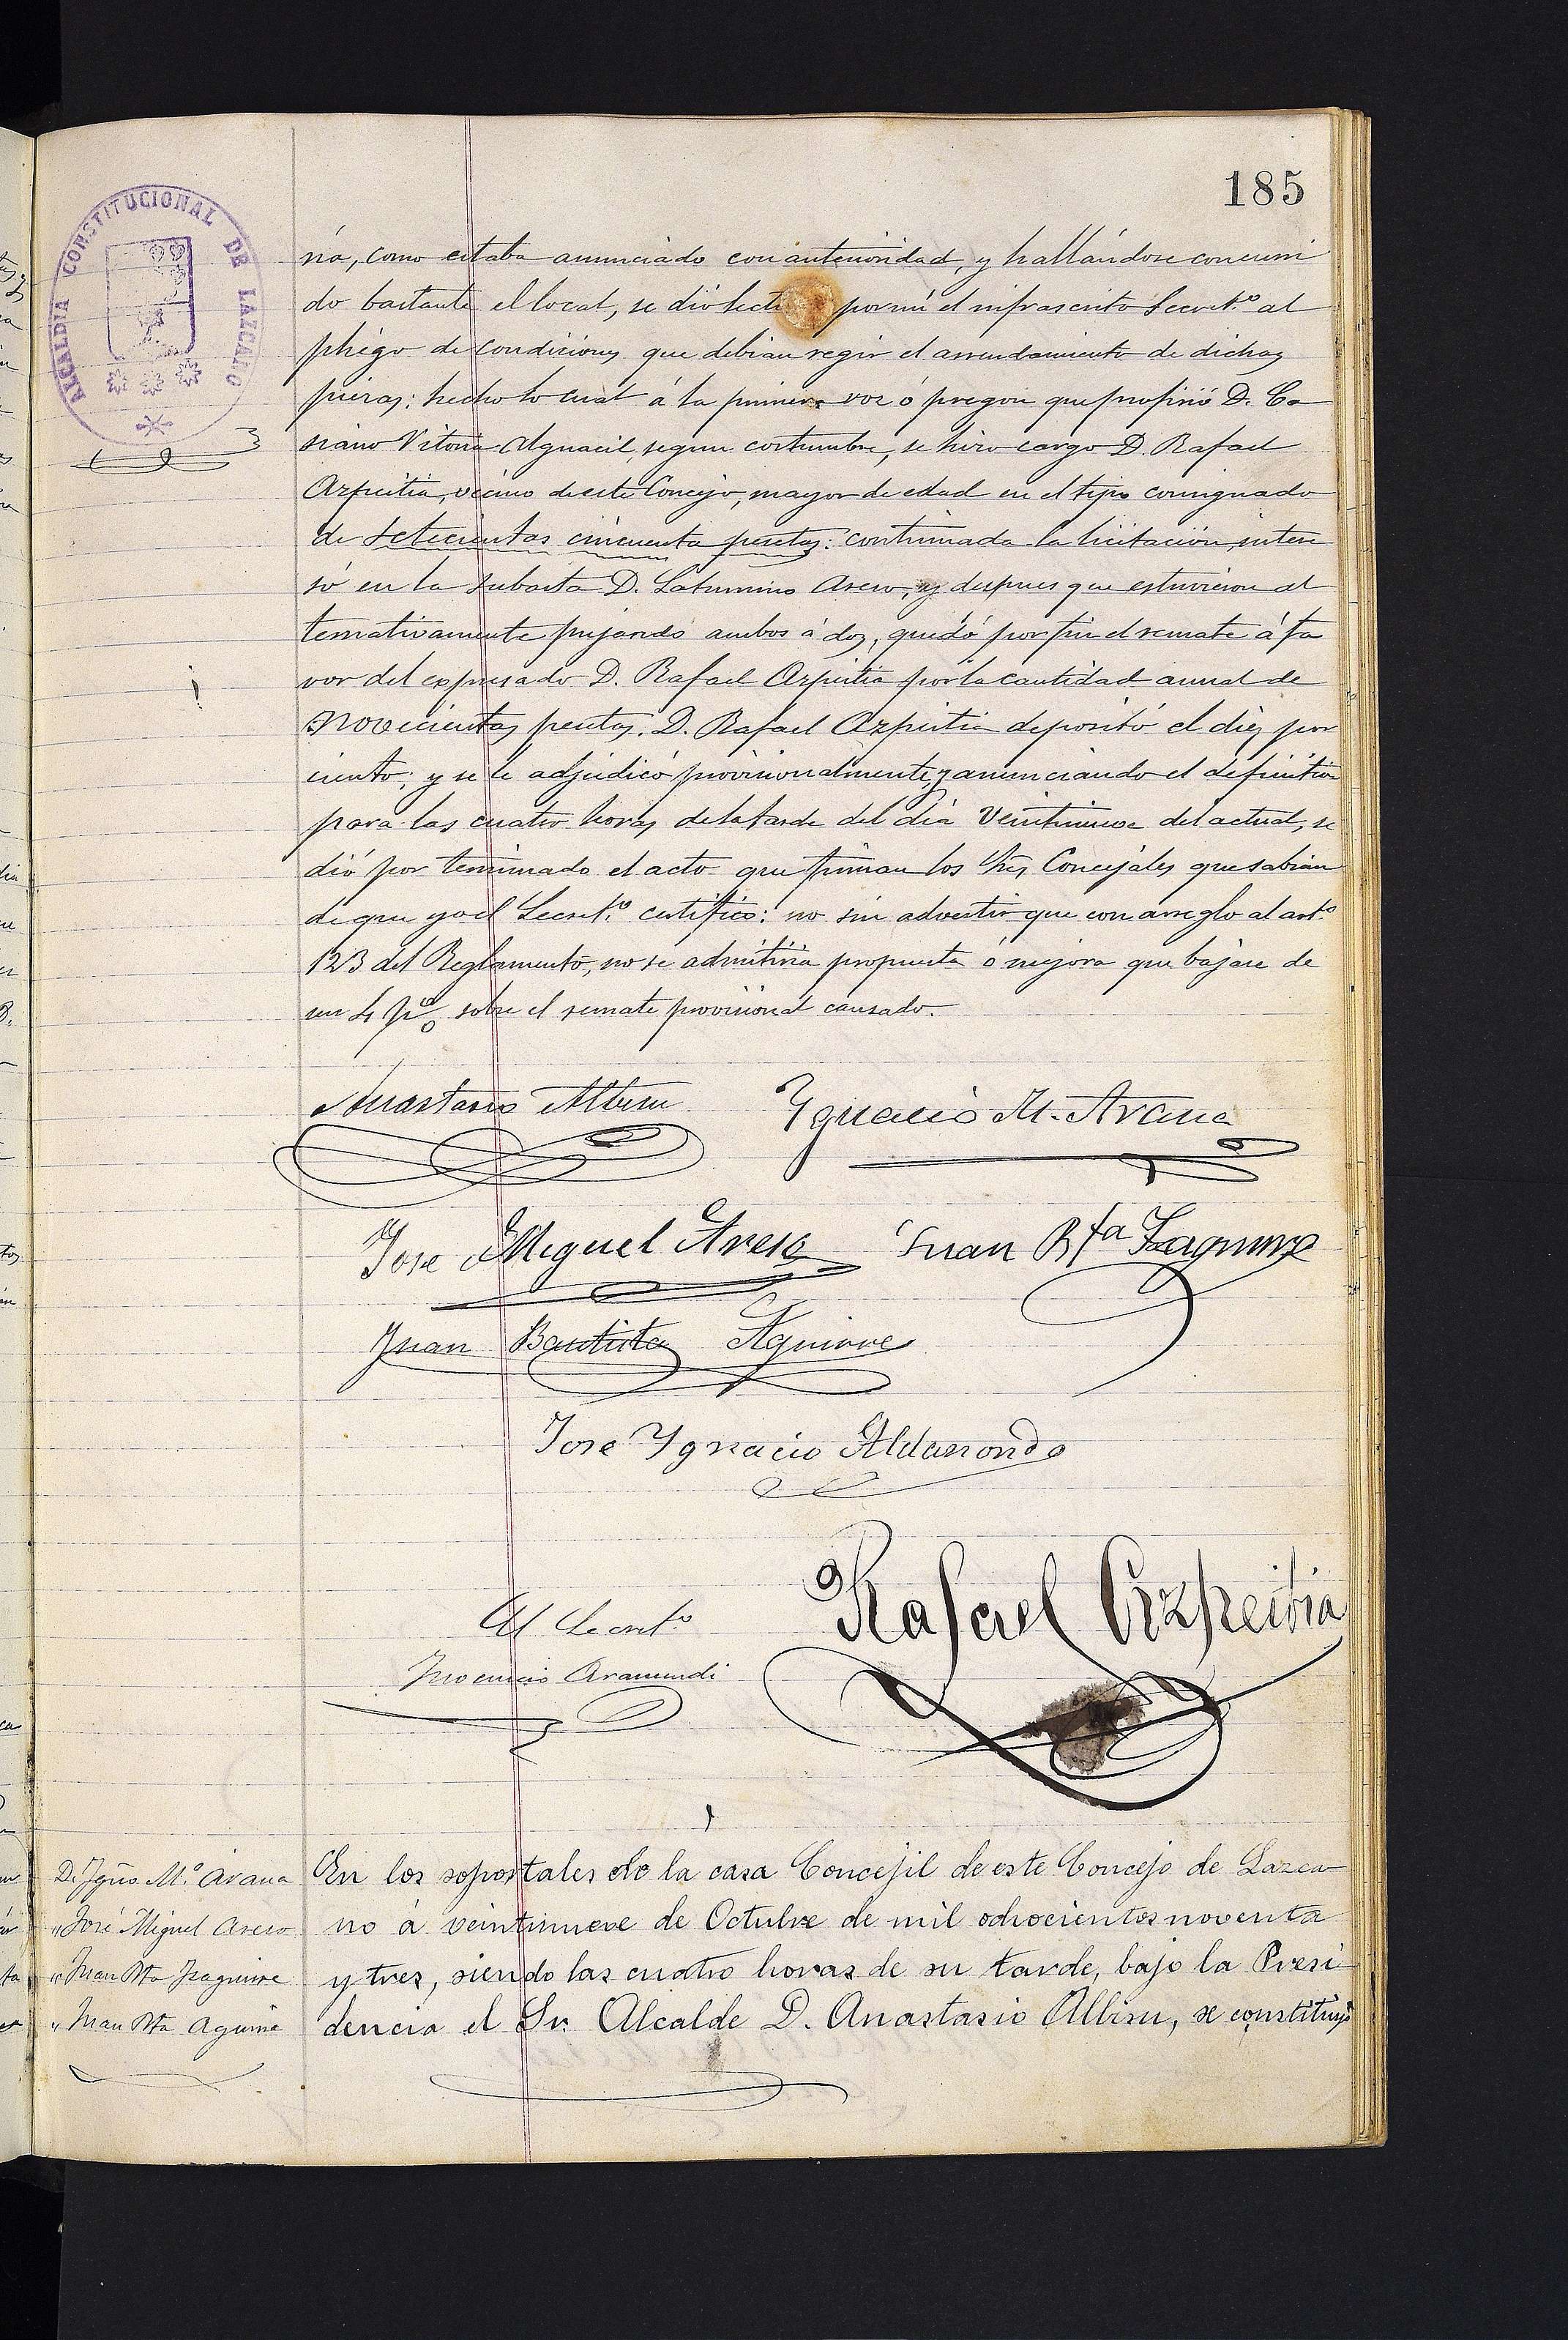 185
ALCALDIA CONSTITUCIONAL DE LAZCANO
ria, como estaba anunciado con anterioridad, y hallándose concurri
do bastante el local, se dió lect por mi el infrascrito Secret.º al
pliego de condiciones que debian regir el arrendamiento de dichas
piezas: hecho lo cual á la primera voz ó pregon que profirió D. Ca
siano Vitoria Alguacil, segun costumbre, se hizo cargo D. Rafael
Azpeitia, vecino de este Concejo, mayor de edad en el tipo consignado
de setecientas cincuenta pesetas: continuada la licitacion, intere
só en la subasta D. Saturnino Areso, y despues que estuvieron al
ternativamente pujando ambos á dos, quedó por fin el remate á fa
vor del expresado D. Rafael Azpeitia por la cantidad anual de
novecientas pesetas. D. Rafael Azpeitia depositó el diez por
ciento; y se le adjudicó provisionalmente, y anunciando el definitivo
para las cuatro horas de la tarde del dia veintinueve del actual, se
dió por terminado el acto que firman los Sres Concejales que sabian
de que yo el Secret.º certifico: no sin advertir que con arreglo al art.º
123 del Reglamento, no se admitiria propuesta ó mejora que bajase de
un 4 p% sobre el remate provisional causado.
Anastasio Albisu Ygnacio M. Arana
Jose Miguel Areso Juan Bta Izaguirre
Juan Bautista Aguirre
Jose Ygnacio Aldasondo
Rafael Azpeitia
El Secret.º
Inocencio Aramendi
D. Igno M.ª Arana
" José Miguel Areso
" Juan Bta Izaguirre
" Juan Bta Aguirre
En los soportales de la casa Concejil de este Concejo de Lazca
no á veintinueve de Octubre de mil ochocientos noventa
y tres, siendo las cuatro horas de su tarde, bajo la Presi
dencia el Sr. Alcalde D. Anastasio Albisu, se constituyó